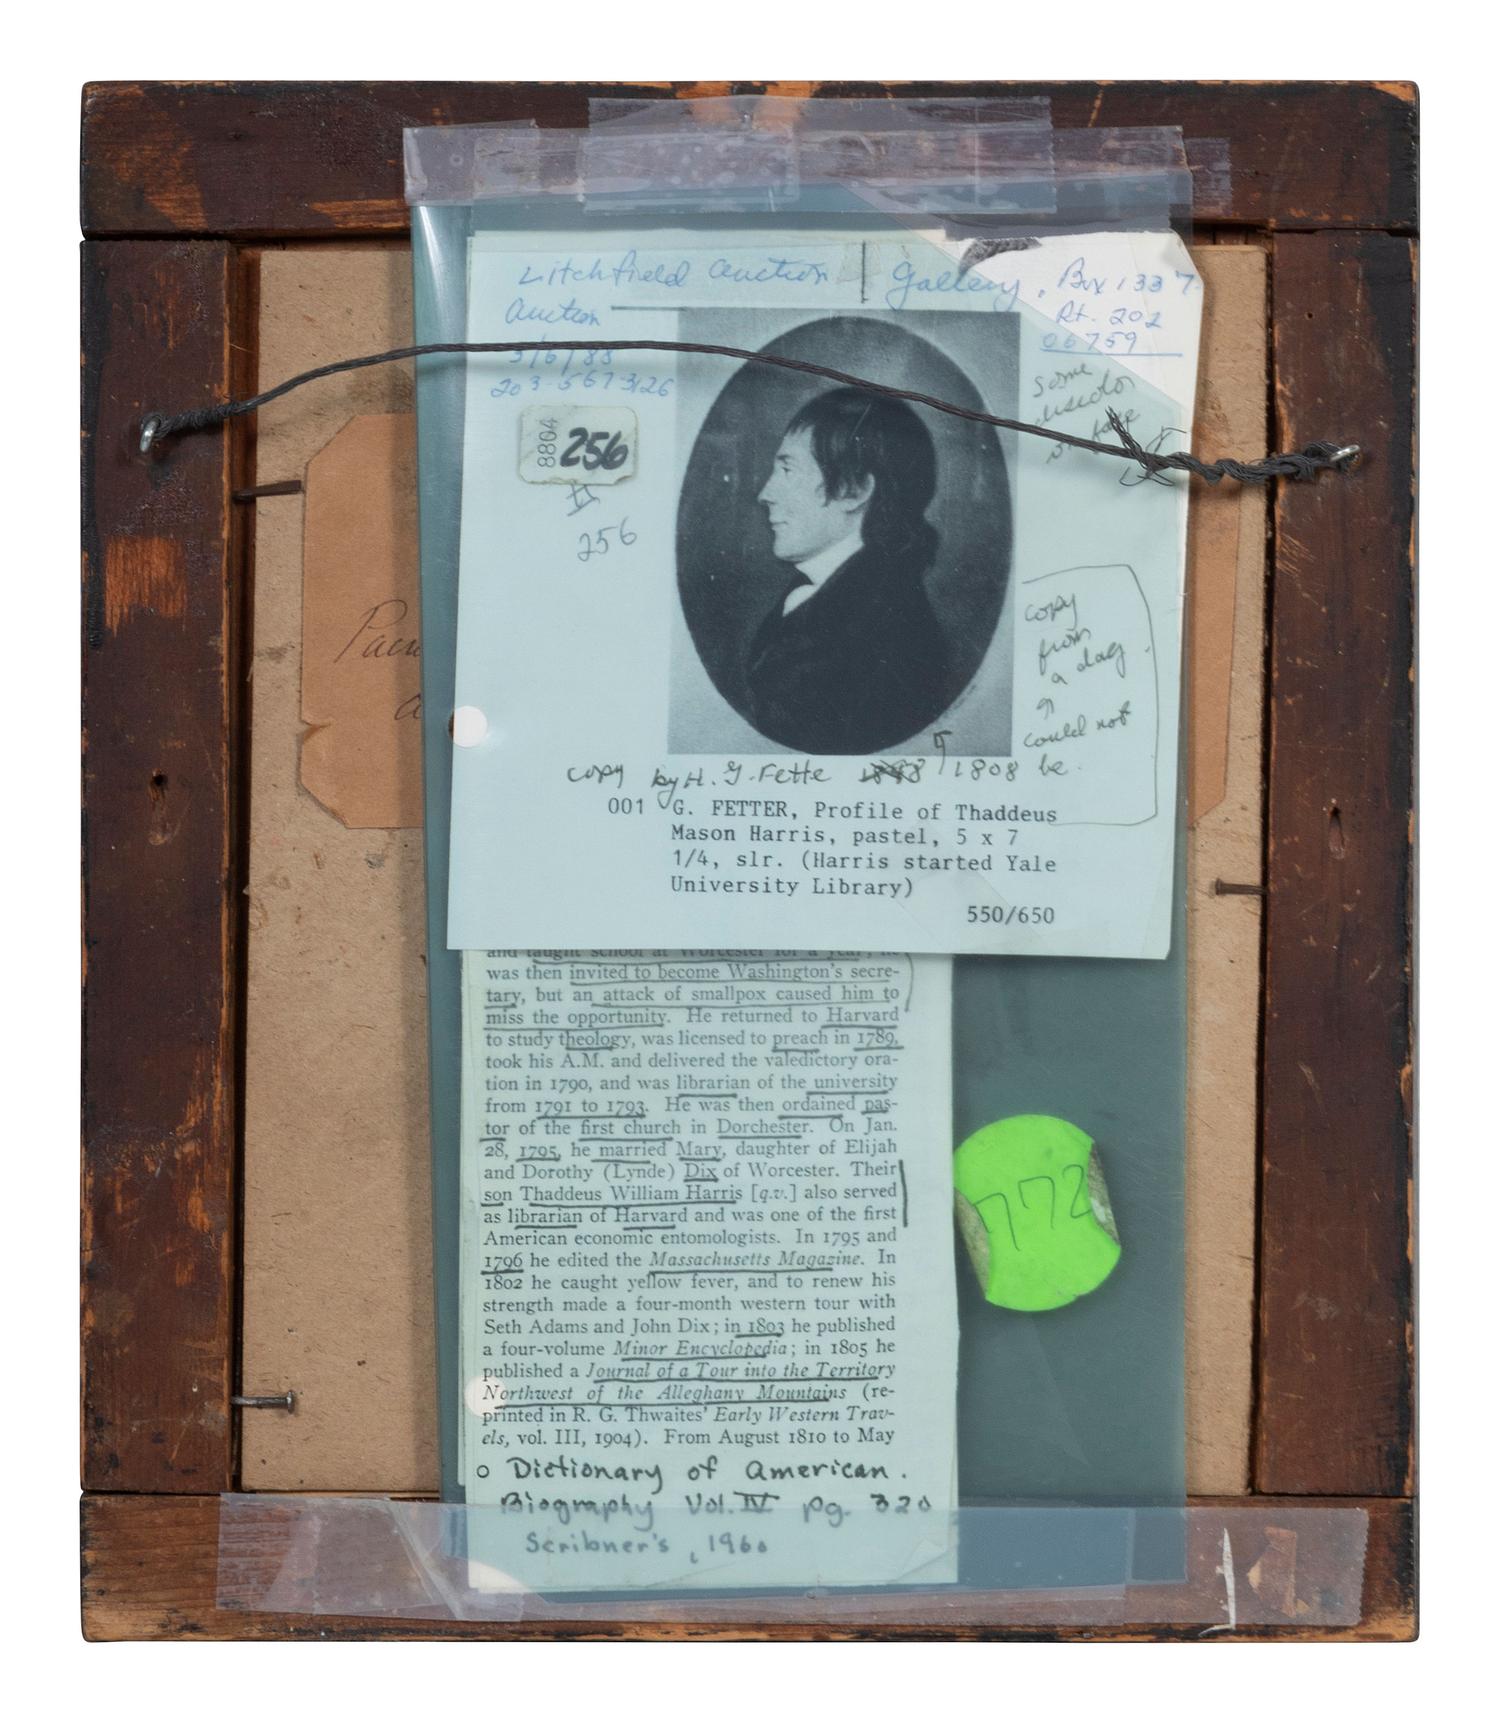 Litchfield Auction Gallery, Box 1337
Auction Rt. 202
3/6/88 06759
203-567-3126
some
8804 256
#
256
copy
from
a dag
could not
be.
copy by H. G. Fette 1808
001 G. FETTER, Profile of Thaddeus
Mason Harris, pastel, 5 x 7
1/4, slr. (Harris started Yale
University Library)
550/650
and taught school at Worcester for a year; he
was then invited to become Washington's secre-
tary, but an attack of smallpox caused him to
miss the opportunity. He returned to Harvard
to study theology, was licensed to preach in 1789,
took his A.M. and delivered the valedictory ora-
tion in 1790, and was librarian of the university
from 1791 to 1793. He was then ordained pas-
tor of the first church in Dorchester. On Jan.
28, 1795, he married Mary, daughter of Elijah
and Dorothy (Lynde) Dix of Worcester. Their
son Thaddeus William Harris [q.v.] also served
as librarian of Harvard and was one of the first
American economic entomologists. In 1795 and
1796 he edited the Massachusetts Magazine. In
1802 he caught yellow fever, and to renew his
strength made a four-month western tour with
Seth Adams and John Dix; in 1803 he published
a four-volume Minor Encyclopedia; in 1805 he
published a Journal of a Tour into the Territory
Northwest of the Alleghany Mountains (re-
printed in R. G. Thwaites' Early Western Trav-
els, vol. III, 1904). From August 1810 to May
Dictionary of American.
Biography Vol. IV pg. 320
Scribner's, 1960
772